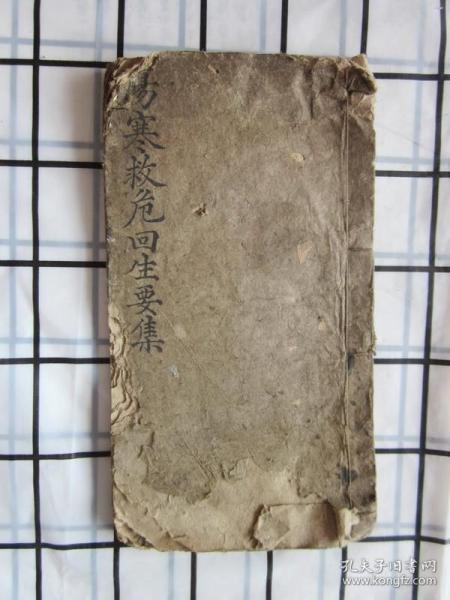 傷寒救危回生要集
孔夫子旧书网
www.kongfz.com